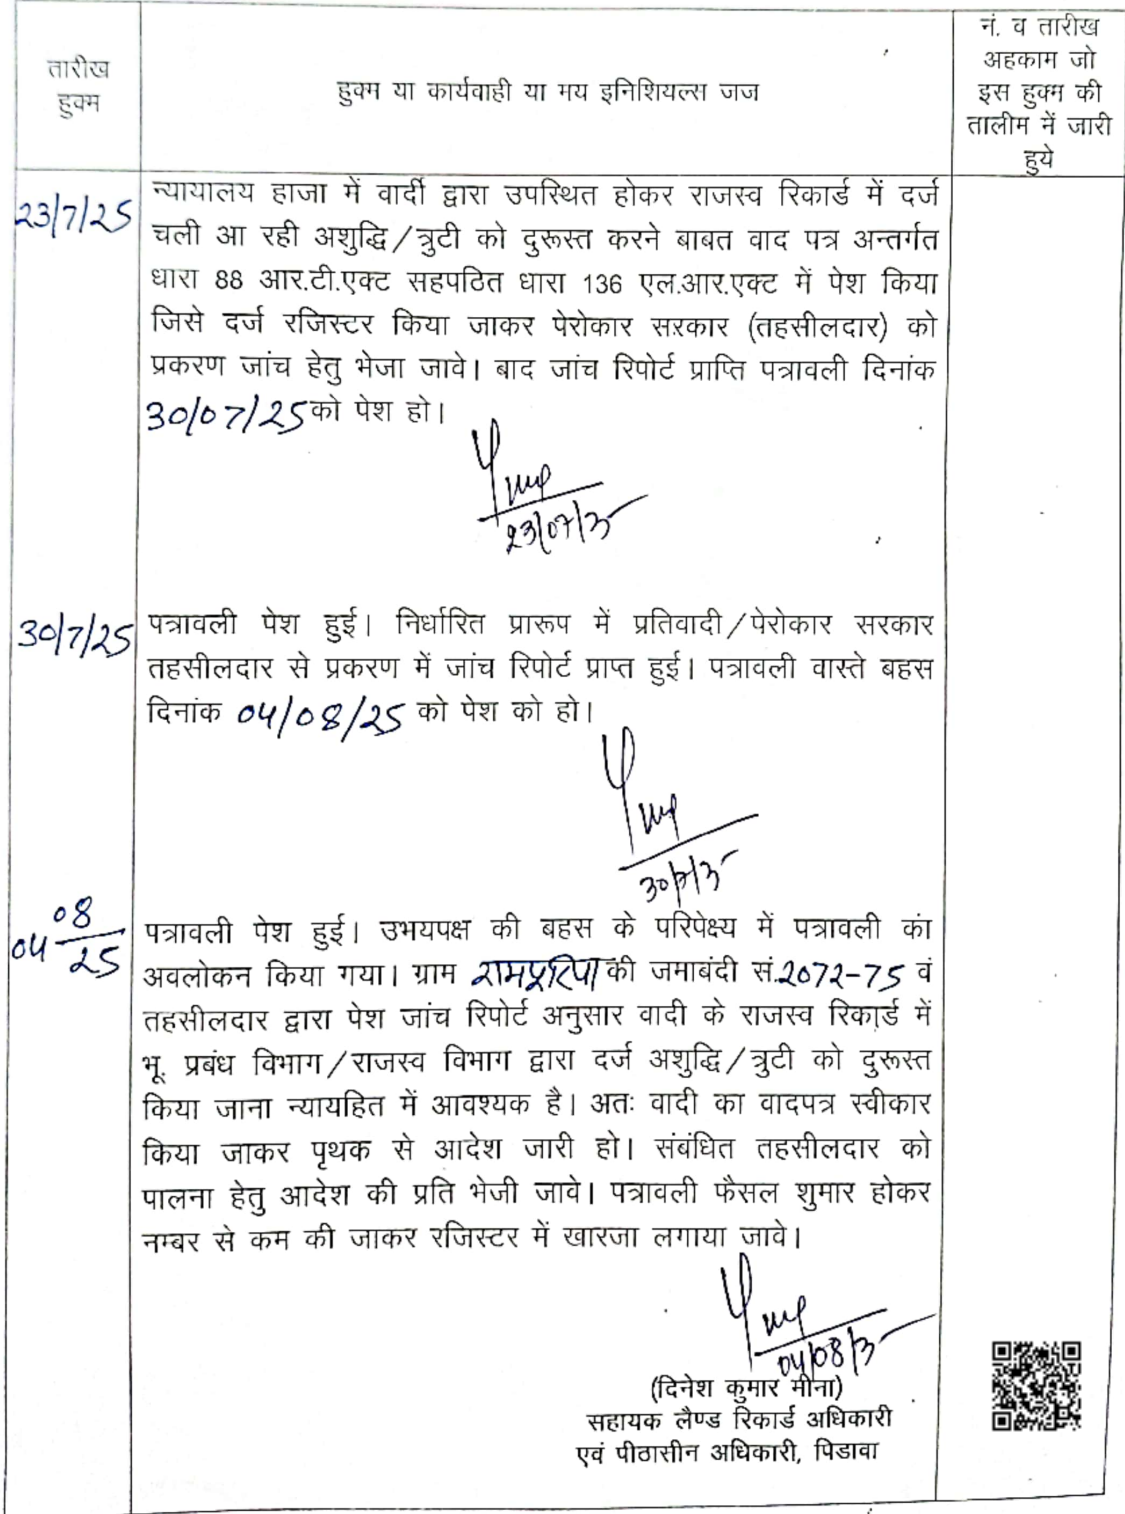 तारीख
हुक्म
हुक्म या कार्यवाही या मय इनिशियल्स जज
नं. व तारीख
अहकाम जो
इस हुक्म की
तालीम में जारी
हुये
23/7/25
न्यायालय हाजा में वादी द्वारा उपस्थित होकर राजस्व रिकार्ड में दर्ज
चली आ रही अशुद्धि/त्रुटी को दुरूस्त करने बाबत वाद पत्र अन्तर्गत
धारा 88 आर.टी.एक्ट सहपठित धारा 136 एल.आर.एक्ट में पेश किया
जिसे दर्ज रजिस्टर किया जाकर पेरोकार सरकार (तहसीलदार) को
प्रकरण जांच हेतु भेजा जावे। बाद जांच रिपोर्ट प्राप्ति पत्रावली दिनांक
30/07/25 को पेश हो।
23/07/25
30/7/25
पत्रावली पेश हुई। निर्धारित प्रारूप में प्रतिवादी/पेरोकार सरकार
तहसीलदार से प्रकरण में जांच रिपोर्ट प्राप्त हुई। पत्रावली वास्ते बहस
दिनांक 04/08/25 को पेश को हो।
30/7/25
04 08/25
पत्रावली पेश हुई। उभयपक्ष की बहस के परिपेक्ष्य में पत्रावली का
अवलोकन किया गया। ग्राम रामपुरिया की जमाबंदी सं.2072-75 वं
तहसीलदार द्वारा पेश जांच रिपोर्ट अनुसार वादी के राजस्व रिकार्ड में
भू. प्रबंध विभाग/राजस्व विभाग द्वारा दर्ज अशुद्धि/त्रुटी को दुरूस्त
किया जाना न्यायहित में आवश्यक है। अतः वादी का वादपत्र स्वीकार
किया जाकर पृथक से आदेश जारी हो। संबंधित तहसीलदार को
पालना हेतु आदेश की प्रति भेजी जावे। पत्रावली फैसल शुमार होकर
नम्बर से कम की जाकर रजिस्टर में खारजा लगाया जावे।
04/08/25
(दिनेश कुमार मीना)
सहायक लैण्ड रिकार्ड अधिकारी
एवं पीठासीन अधिकारी, पिडावा